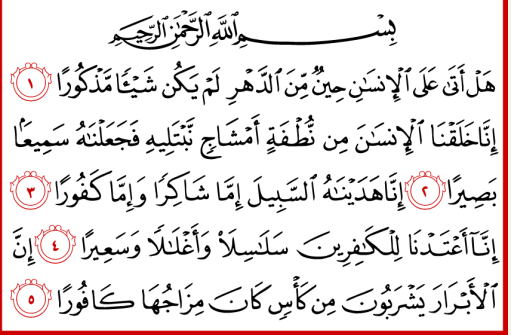 بِسْمِ ٱللَّهِ ٱلرَّحْمَٰنِ ٱلرَّحِيمِ
هَلْ أَتَىٰ عَلَى ٱلْإِنسَٰنِ حِينٌ مِّنَ ٱلدَّهْرِ لَمْ يَكُن شَيْـًٔا مَّذْكُورًا ١
إِنَّا خَلَقْنَا ٱلْإِنسَٰنَ مِن نُّطْفَةٍ أَمْشَاجٍ نَّبْتَلِيهِ فَجَعَلْنَٰهُ سَمِيعًۢا
بَصِيرًا ٢ إِنَّا هَدَيْنَٰهُ ٱلسَّبِيلَ إِمَّا شَاكِرًا وَإِمَّا كَفُورًا ٣
إِنَّآ أَعْتَدْنَا لِلْكَٰفِرِينَ سَلَٰسِلَا۟ وَأَغْلَٰلًا وَسَعِيرًا ٤ إِنَّ
ٱلْأَبْرَارَ يَشْرَبُونَ مِن كَأْسٍ كَانَ مِزَاجُهَا كَافُورًا ٥